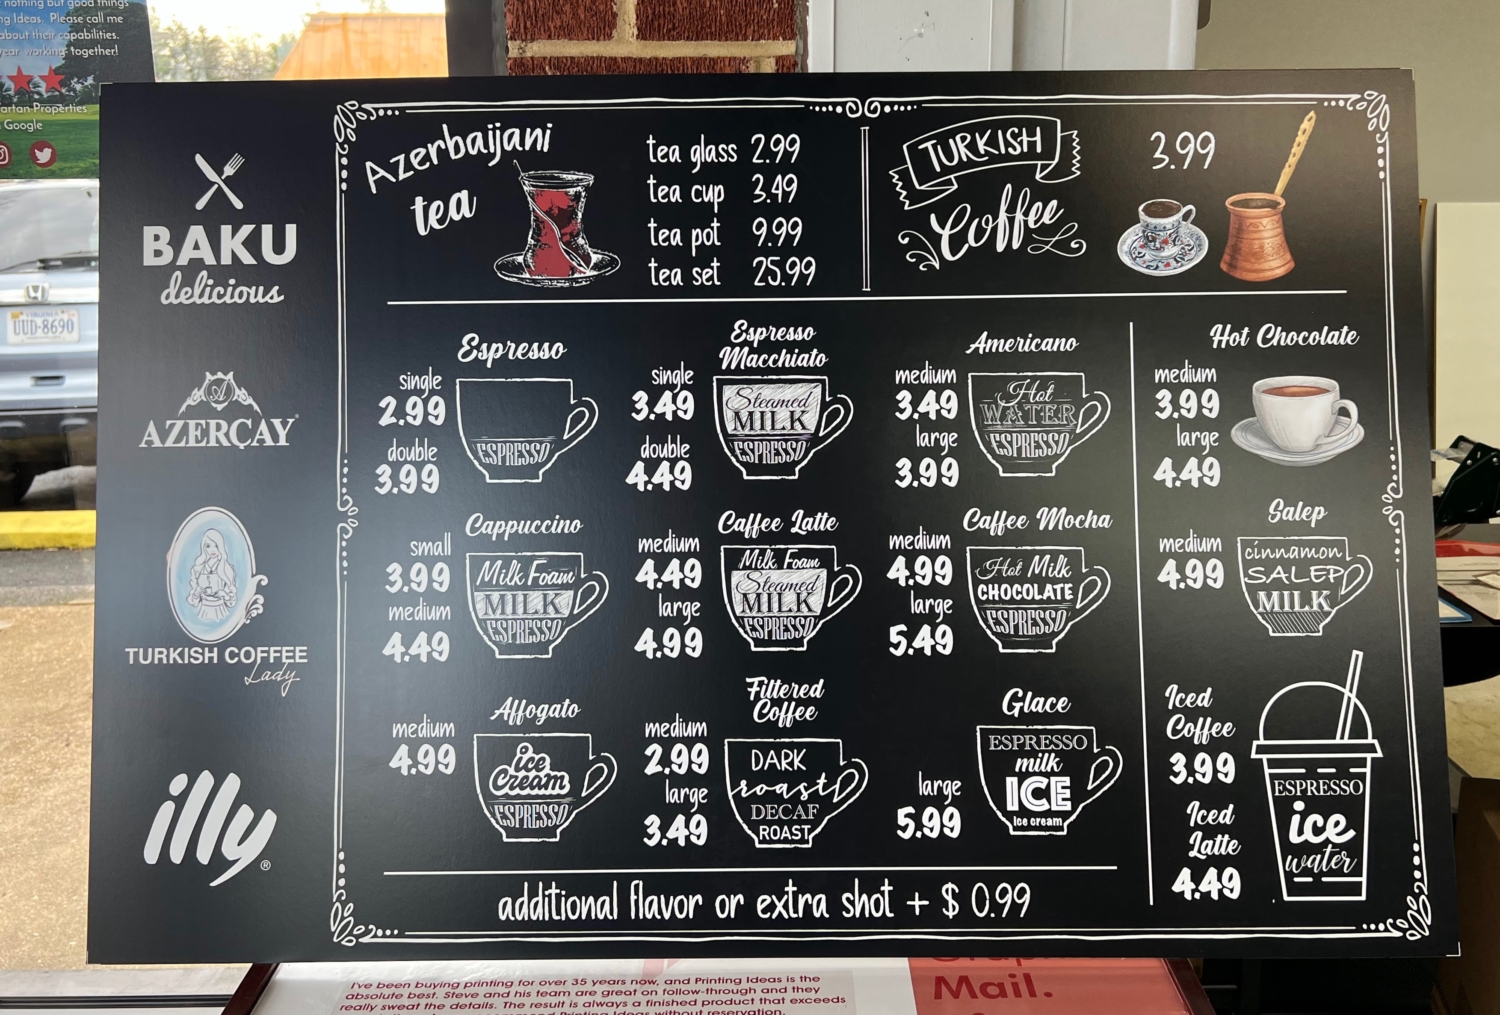 nothing but good things
ng Ideas. Please call me
about their capabilities.
year working together!
artan Properties
Google
UUD-8690
BAKU
delicious
AZERÇAY
TURKISH COFFEE
Lady
illy®
Azerbaijani
tea
tea glass 2.99
tea cup 3.49
tea pot 9.99
tea set 25.99
TURKISH
Coffee
3.99
Espresso
single
2.99
double
3.99
ESPRESSO
Espresso
Macchiato
single
3.49
double
4.49
Steamed
MILK
ESPRESSO
Americano
medium
3.49
large
3.99
Hot
WATER
ESPRESSO
Hot Chocolate
medium
3.99
large
4.49
Cappuccino
small
3.99
medium
4.49
Milk Foam
MILK
ESPRESSO
Caffee Latte
medium
4.49
large
4.99
Milk Foam
Steamed
MILK
ESPRESSO
Caffee Mocha
medium
4.99
large
5.49
Hot Milk
CHOCOLATE
ESPRESSO
Salep
medium
4.99
cinnamon
SALEP
MILK
Affogato
medium
4.99
ice
Cream
ESPRESSO
Filtered
Coffee
medium
2.99
large
3.49
DARK
roast
DECAF
ROAST
Glace
large
5.99
ESPRESSO
milk
ICE
Ice cream
Iced
Coffee
3.99
Iced
Latte
4.49
ESPRESSO
ice
water
additional flavor or extra shot + $ 0.99
I've been buying printing for over 35 years now, and Printing Ideas is the
absolute best. Steve and his team are great on follow-through and they
really sweat the details. The result is always a finished product that exceeds
Printing Ideas without reservation.
Mail.